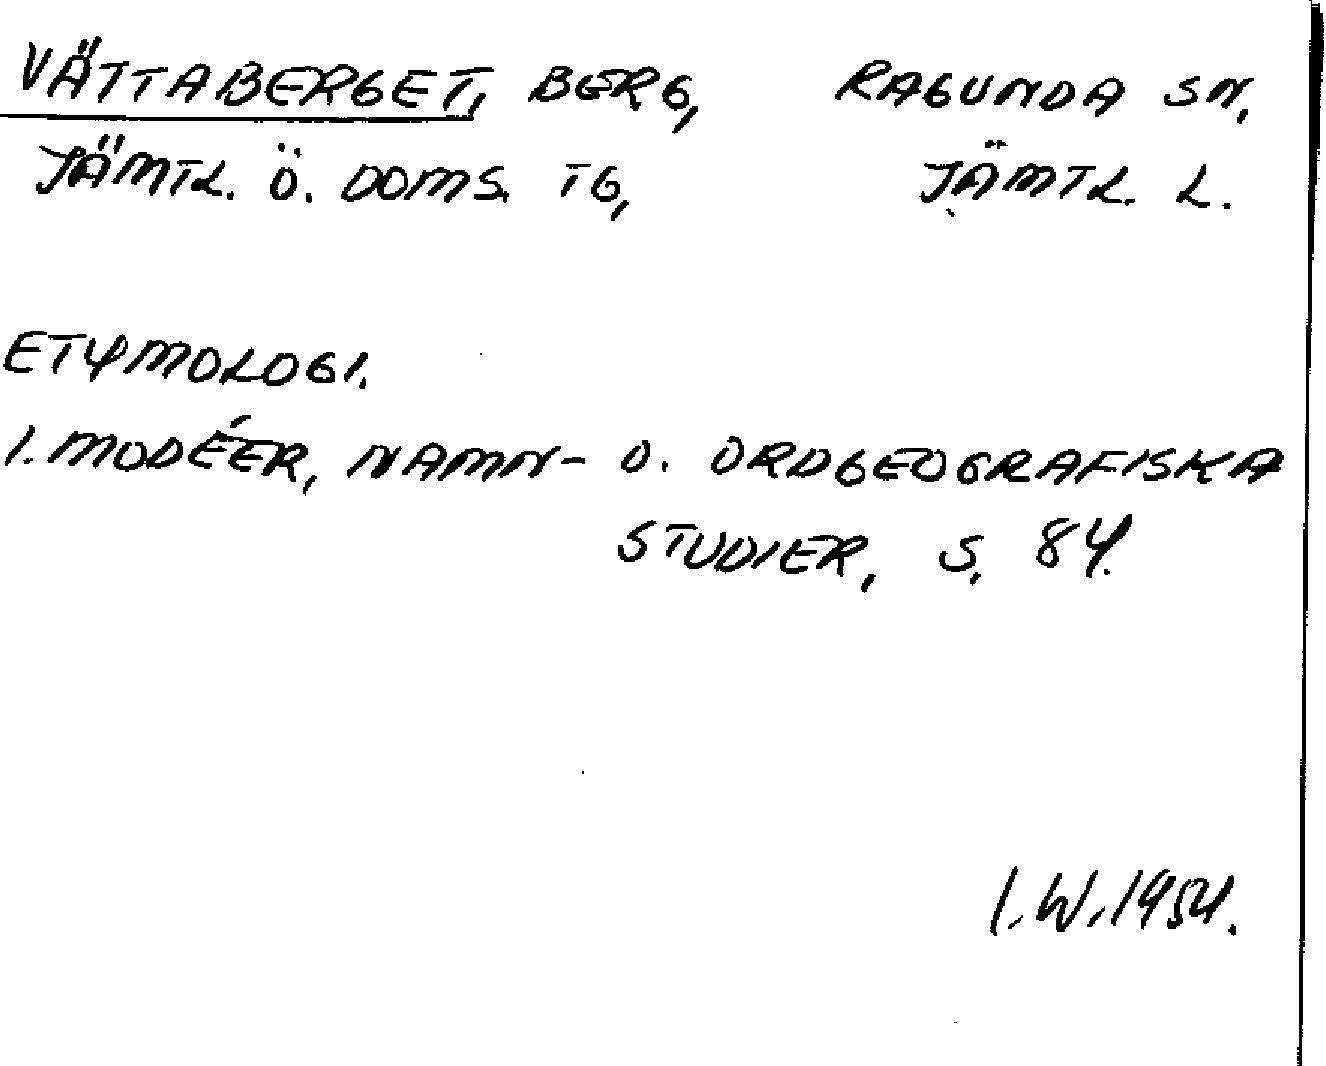 VÄTTABERGET, BERG, RAGUNDA SN,
JÄMTL. Ö. DOMS. TG, JÄMTL. L.
ETYMOLOGI.
I. MODÉER, NAMN- O. ORDGEOGRAFISKA
STUDIER, S. 84.
I.W. 1954.